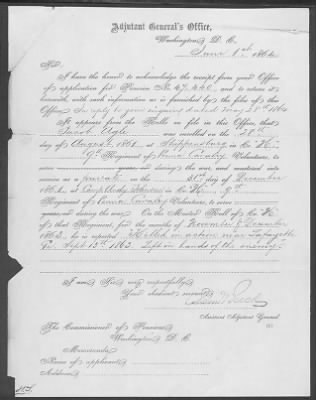 Adjutant General's Office,
Washington D. C.
June 1st 1864
Sir:
I have the honor to acknowledge the receipt from your Office
of application for Pension No. 47,440, and to return it
herewith, with such information as is furnished by the files of this
Office. In reply to your signed dated May 27th 1864
It appears from the Rolls on file in this Office, that
Jacob Ugle was enrolled on the 28th
day of August, 1861, at Shippensburg in Co. H,
9th Regiment of Penna Cavalry Volunteers, to serve
years, or during the war, and mustered into
service as a private on the day of December
1861, at Camp Andy Johnson in Co. H, 9th
Regiment of Penna Cavalry Volunteers, to serve
years, or during the war. On the Muster Roll of Co. H
of that Regiment, for the months of November & December
1863, he is reported "Killed in action near Lafayette
Ga. Sept 13th 1863. Left in hands of the enemy."
I am, Sir, very respectfully,
Your obedient servant,
Assistant Adjutant General
The Commissioner of Pensions
Washington D. C.
Memoranda:
Name of applicant
Address